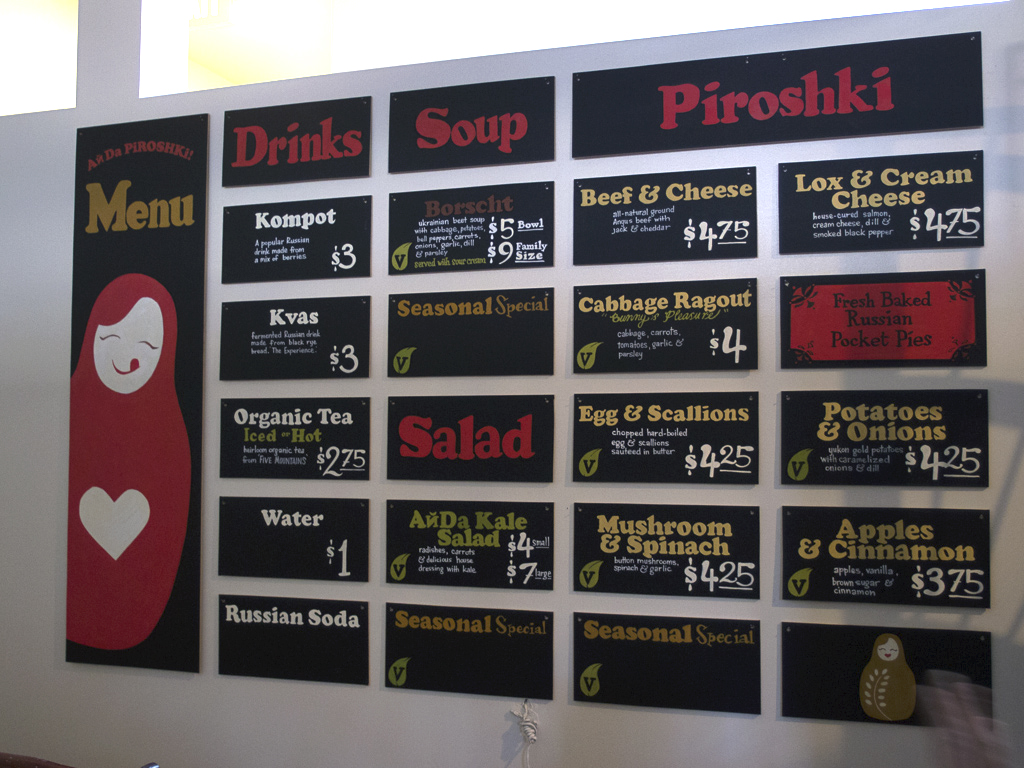 АйDa PiROSHKi!
Menu
Drinks
Kompot
A popular Russian
drink made from
a mix of berries
$3
Kvas
Fermented Russian drink
made from black rye
bread. The Experience.
$3
Organic Tea
Iced or Hot
heirloom organic tea
from FIVE MOUNTAINS
$2.75
Water
$1
Russian Soda
Soup
Borscht
ukrainian beet soup
with cabbage, potatoes,
bell peppers, carrots,
onions, garlic, dill
& parsley
served with sour cream
$5 Bowl
$9 Family
Size
V
Seasonal Special
V
Salad
АйDa Kale
Salad
radishes, carrots
& delicious house
dressing with kale.
$4 small
$7 large
V
Seasonal Special
V
Piroshki
Beef & Cheese
all-natural ground
Angus beef with
jack & cheddar
$4.75
Cabbage Ragout
"Bunny's Pleasure"
cabbage, carrots,
tomatoes, garlic &
parsley
$4
V
Egg & Scallions
chopped hard-boiled
egg & scallions
sauteed in butter
$4.25
V
Mushroom
& Spinach
button mushrooms,
spinach & garlic
$4.25
V
Seasonal Special
V
Lox & Cream
Cheese
house-cured salmon,
cream cheese, dill &
smoked black pepper
$4.75
Fresh Baked
Russian
Pocket Pies
Potatoes
& Onions
yukon gold potatoes
with caramelized
onions & dill
$4.25
V
Apples
& Cinnamon
apples, vanilla,
brown sugar &
cinnamon
$3.75
V